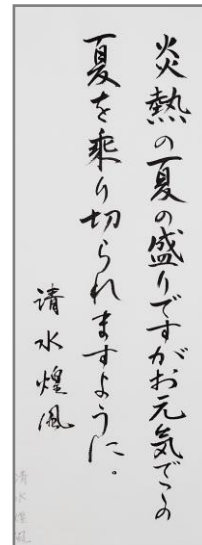 炎熱の夏の盛りですがお元気でこの
夏を乗り切られますように。
清水煌風
清水煌風